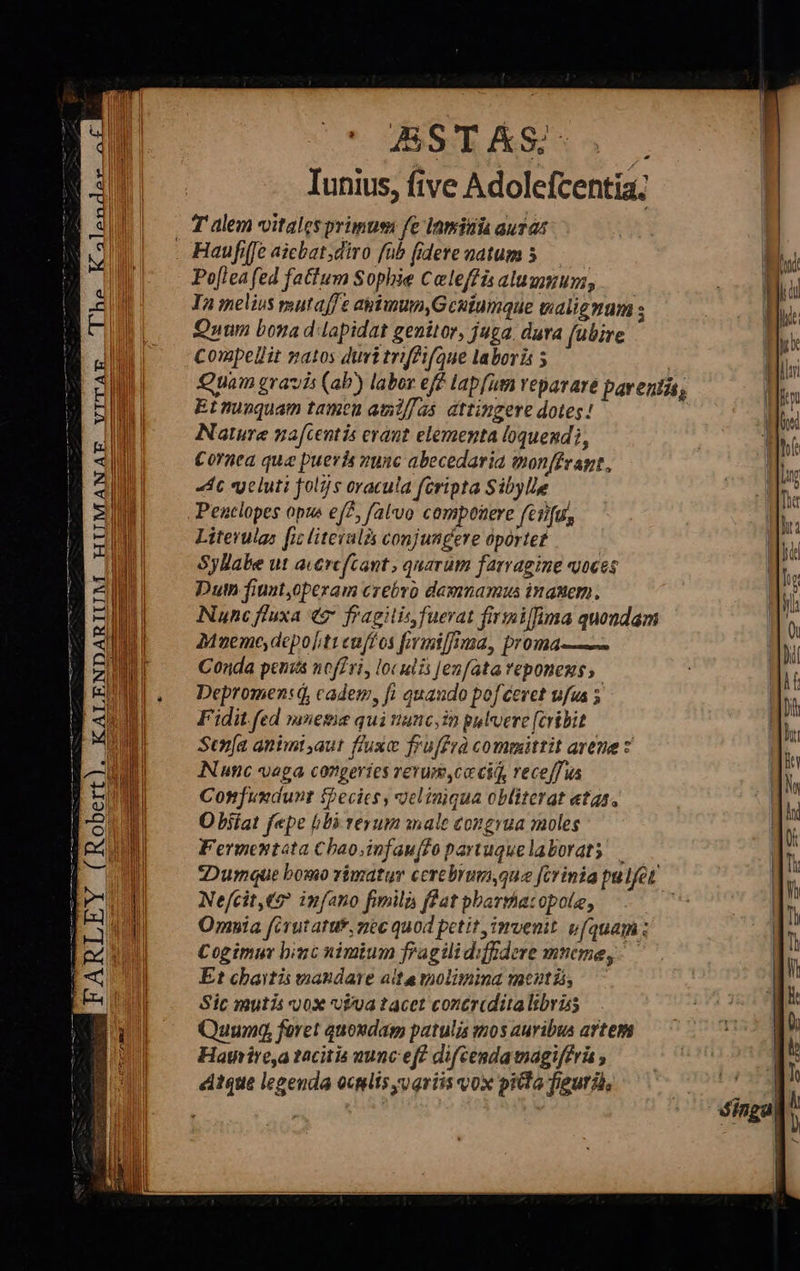 ÆSTAS.
Iunius, ſive Adoleſcentia.
Talem vitales primum ſe laminia auras
Hauſiſſe aiebat, diro ſub ſidere natum;
Poſtea ſed factum Sophiæ Cæleſtis alumnum,
In melius mutaſſe animum, Geniumque malignum;
Quum bona dilapidat genitor, juga dura ſubire
Compellit natos duri triſtiſque laboris;
Quam gravis (ah) labor eſt lapſum reparare parentis,
Et nunquam tamen amiſſas attingere dotes!
Naturæ naſcentis erant elementa loquendi,
Cornea quæ pueris nunc abecedaria monſtrant,
Ac veluti folijs oracula ſcripta Sibyllæ
Penelopes opus eſt, ſalvo componere ſenſu,
Literulas ſic literulis conjungere oportet
Syllabæ ut accreſcant, quarum farragine voces
Dum fiunt, operam crebrò damnamus inanem.
Nunc fluxa & fragilis, fuerat firmiſſima quondam
Mneme, depoſiti cuſtos firmiſſima, proma——
Conda penus noſtri, loculis ſenſata reponens,
Depromensq, eadem, ſi quando poſceret uſus;
Fidit ſed mneme qui nunc, in pulvere ſcribit
Senſa animi, aut fluxæ fruſtrà committit arenæ:
Nunc vaga congeries rerum, cæciq, receſſus
Confundunt ſpecies, veliniqua obliterat ætas.
Obſtat ſæpe ſibi rerum male congrua moles
Fermentata Chao, infauſto partuque laborat;
Dumque homo rimatur cerebrum, quæ ſcrinia pulſet
Neſcit, & inſano ſimilis ſtat pharmacopolæ,
Omnia ſcrutatur, nec quod petit, invenit uſquam:
Cogimur hinc nimium fragili diffidere mneme,
Et chartis mandare alta molimina mentis,
Sic mutis vox viva tacet concredita libris;
Quumq, foret quondam patulis mos auribus artem
Haurire, a tacitis nunc eſt diſcenda magiſtris,
Atque legenda oculis, variis vox picta figuris.
Singu
FARLEY (Robert). KALENDARIUM HUMANAE VITAE The Kalender of